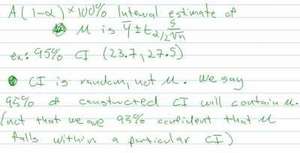 A (1-α) × 100% Interval estimate of
μ is ȳ ± t α/2 s/√n
ex: 95% CI (23.7, 27.5)
CI is random, not μ. We say
95% of constructed CI will contain μ.
(not that we are 95% confident that μ
falls within a particular CI)